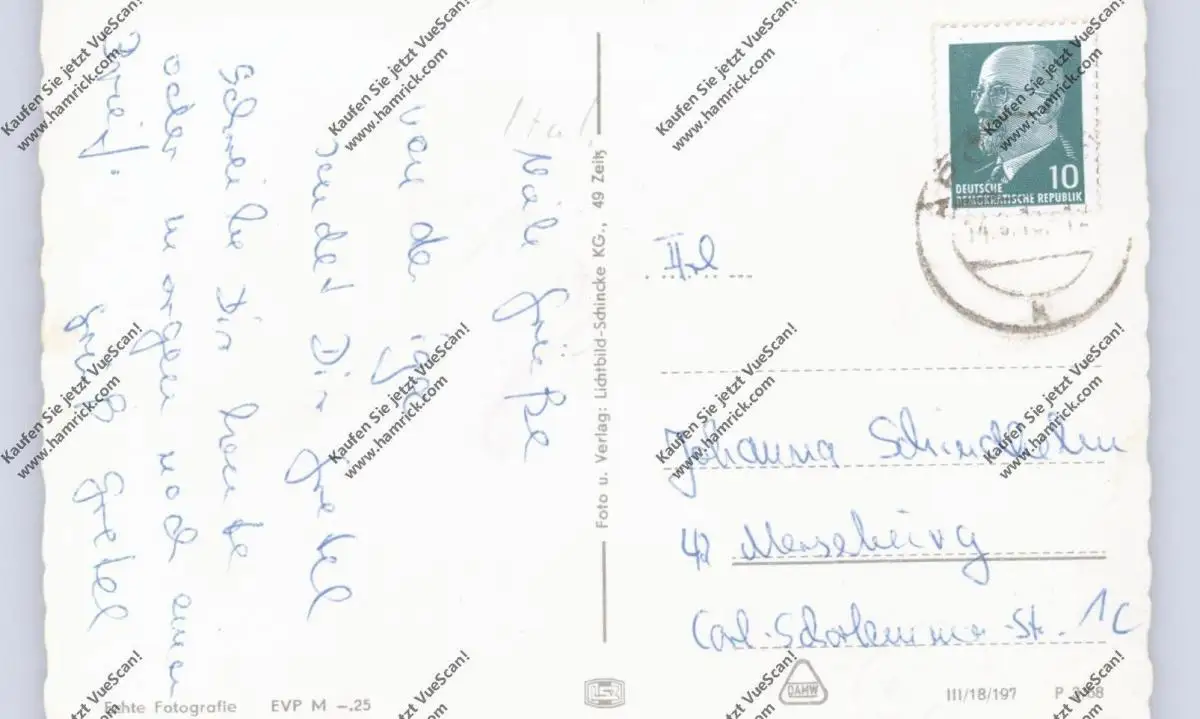 Viele Grüße
von de iga
sendet Dir Gretel
Schreibe Dir heute
oder morgen noch einen
Brief.
Gruß Gretel
Foto u. Verlag: Lichtbild-Schincke KG., 49 Zeitz
DEUTSCHE
DEMOKRATISCHE REPUBLIK
10
Frl
Johanna Schindhelm
42 Merseburg
Carl-Schorlemmer-St. 1C
Echte Fotografie EVP M -,25
DAMW
III/18/197 P 3/68
Kaufen Sie jetzt VueScan!
www.hamrick.com